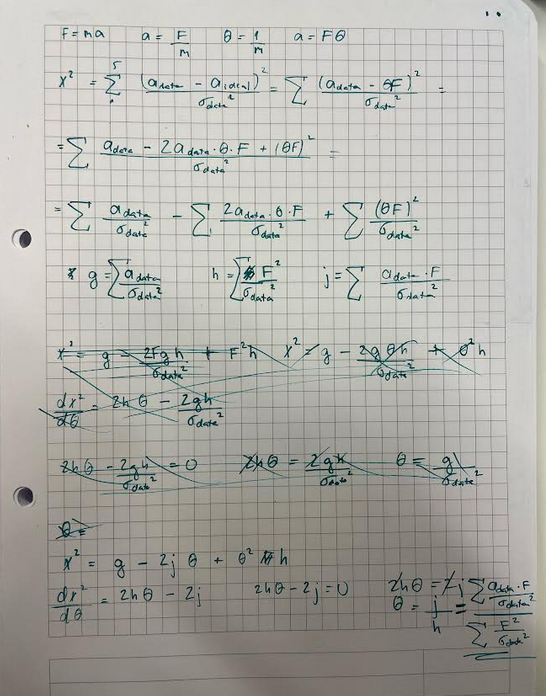 F = ma a = F/m θ = 1/m a = Fθ
x² = Σ (a_data − a_ideal)²/σ_data² = Σ (a_data − θF)²/σ_data² =
= Σ (a_data − 2a_data·θ·F + (θF)²)/σ_data² =
= Σ a_data/σ_data² − Σ 2a_data·θ·F/σ_data² + Σ (θF)²/σ_data²
g = Σ a_data/σ_data² h = Σ F²/σ_data² j = Σ a_data·F/σ_data²
x² = g − 2Fgh/σ_data² + F²h x² = g − 2gθh/σ_data² + θ²h
dx²/dθ = 2hθ − 2gh/σ_data²
2hθ − 2gh/σ_data² = 0 2hθ = 2gh/σ_data² θ = g/σ_data²
θ =
x² = g − 2jθ + θ²h
dx²/dθ = 2hθ − 2j 2hθ − 2j = 0 2hθ = 2j
θ = j/h = (Σ a_data·F/σ_data²)/(Σ F²/σ_data²)